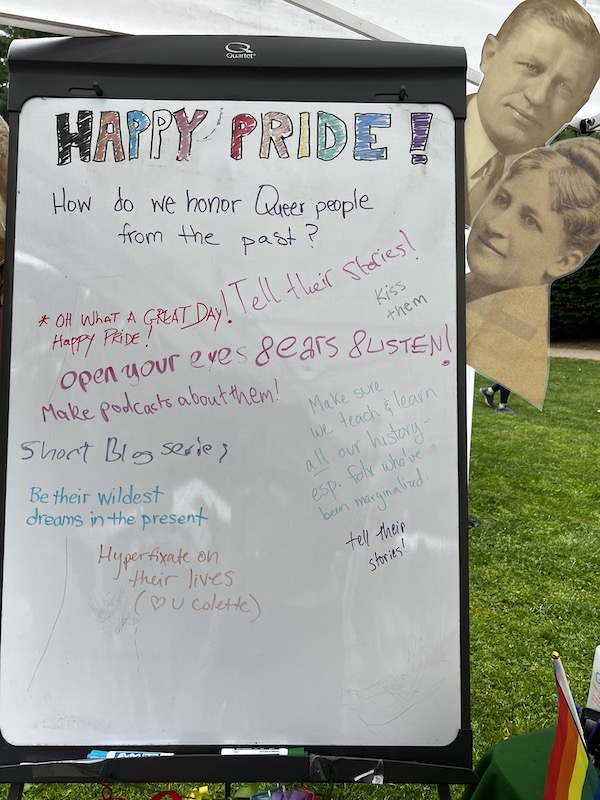 Quartet
HAPPY PRIDE!
How do we honor Queer people
from the past?
Tell their stories!
* OH WHAT A GREAT DAY!
Happy PRIDE!
Kiss
them
open your eyes & ears & LISTEN!
Make podcasts about them!
Make sure
we teach & learn
all our history-
esp. folx who've
been marginalized.
Short Blog series
Be their wildest
dreams in the present
tell their
stories!
Hyperfixate on
their lives
(♡ U Colette)